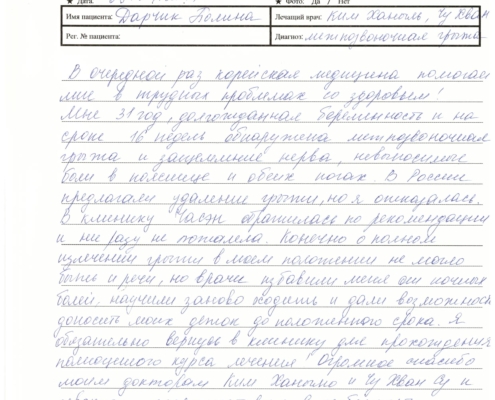 ★ Дата: ★ Фото: Да / Нет
Имя пациента: Дарчик Полина Лечащий врач: Ким Ханоль, Чу Хван
Рег. № пациента: Диагноз: межпозвоночная грыжа
В очередной раз корейская медицина помогает
мне в трудных проблемах со здоровьем!
Мне 31 год, долгожданная беременность и на
сроке 16 недель обнаружена межпозвоночная
грыжа и защемление нерва, невыносимые
боли в пояснице и обеих ногах. В России
предлагали удаление грыжи, но я отказалась.
В клинику Часэн обратилась по рекомендации
и ни разу не пожалела. Конечно о полном
излечении грыжи в моем положении не могло
быть и речи, но врачи избавили меня от ночных
болей, научили заново ходить и дали возможность
доносить моих деток до положенного срока. Я
обязательно вернусь в клинику для прохождения
полноценного курса лечения. Огромное спасибо
моим докторам Ким Ханолю и Чу Хван Су и